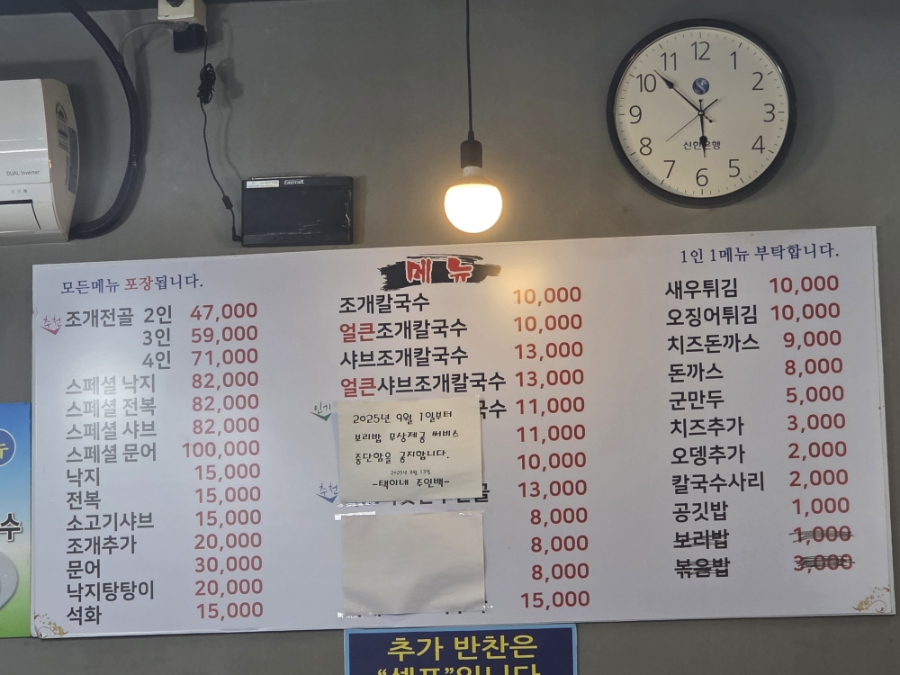 12
1
2
3
4
5
6
7
8
9
10
11
신한은행
DUAL Inverter
모든메뉴 포장됩니다.
메뉴
1인 1메뉴 부탁합니다.
추천 조개전골 2인 47,000
3인 59,000
4인 71,000
스페셜 낙지 82,000
스페셜 전복 82,000
스페셜 샤브 82,000
스페셜 문어 100,000
낙지 15,000
전복 15,000
소고기샤브 15,000
조개추가 20,000
문어 30,000
낙지탕탕이 20,000
석화 15,000
조개칼국수 10,000
얼큰조개칼국수 10,000
샤브조개칼국수 13,000
얼큰샤브조개칼국수 13,000
인기 국수 11,000
11,000
10,000
추천 13,000
8,000
8,000
8,000
15,000
2025년 9월 1일부터
보리밥 무상제공 써비스
중단함을 공지합니다.
-택이네 주인백-
새우튀김 10,000
오징어튀김 10,000
치즈돈까스 9,000
돈까스 8,000
군만두 5,000
치즈추가 3,000
오뎅추가 2,000
칼국수사리 2,000
공깃밥 1,000
보리밥 1,000
볶음밥 3,000
뉴
수
추가 반찬은
"셀프"입니다